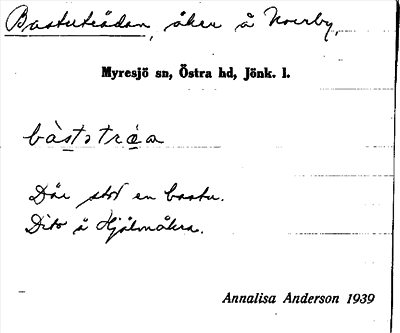 Bastuträdan, åker å Norrby,
Myresjö sn, Östra hd, Jönk. l.
bàstətrɑ̀a
Där stod en bastu.
Dito å Hjälmåkra.
Annalisa Anderson 1939